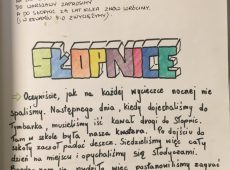 DO WARSZAWY ZAPROSIMY
A DO SKOPJE ZA LAT KILKA ZNÓW WRÓCIMY.
SŁOPNICE
→ Oczywiście, jak na każdej wycieczce nocnej nie
spaliśmy. Następnego dnia, kiedy dojechaliśmy do
Tymbarka musieliśmy iść kawał drogi do Słopnic.
Tam w szkole była nasza kwatera. Po dojściu do
szkoły zaczął padać deszcz. Siedzieliśmy więc cały
dzień na miejscu i opychaliśmy się słodyczami.
więc postanowiliśmy zagrać